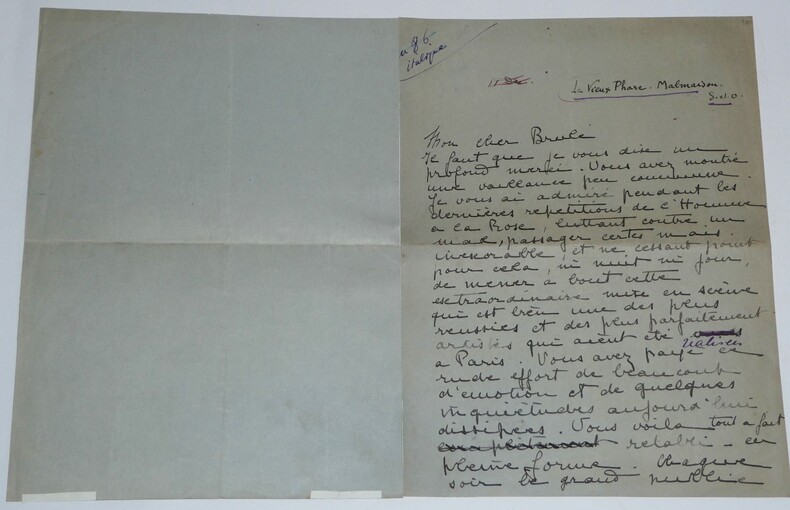 italique
La Vieux Phare. Malmaison.
S.et O.
Mon cher Brulé
Il faut que je vous dise un
profond merci. Vous avez montré
une vaillance peu commune.
Je vous ai admiré pendant les
dernières repetitions de l'Homme
a la Rose, luttant contre un
mal, passager certes mais
inexorable, et ne cessant point
pour cela, ni nuit ni jour,
de mener a bout cette
extraordinaire mise en scène
qui est bien une des plus
reussies et des plus parfaitement
artistes qui aient été
réalisées
a Paris. Vous avez payé ce
rude effort de beaucoup
d'emotion et de quelques
inquiétudes aujourd'hui
dissipées. Vous voila tout a fait
retabli - en
pleine forme. Chaque
soir le grand public